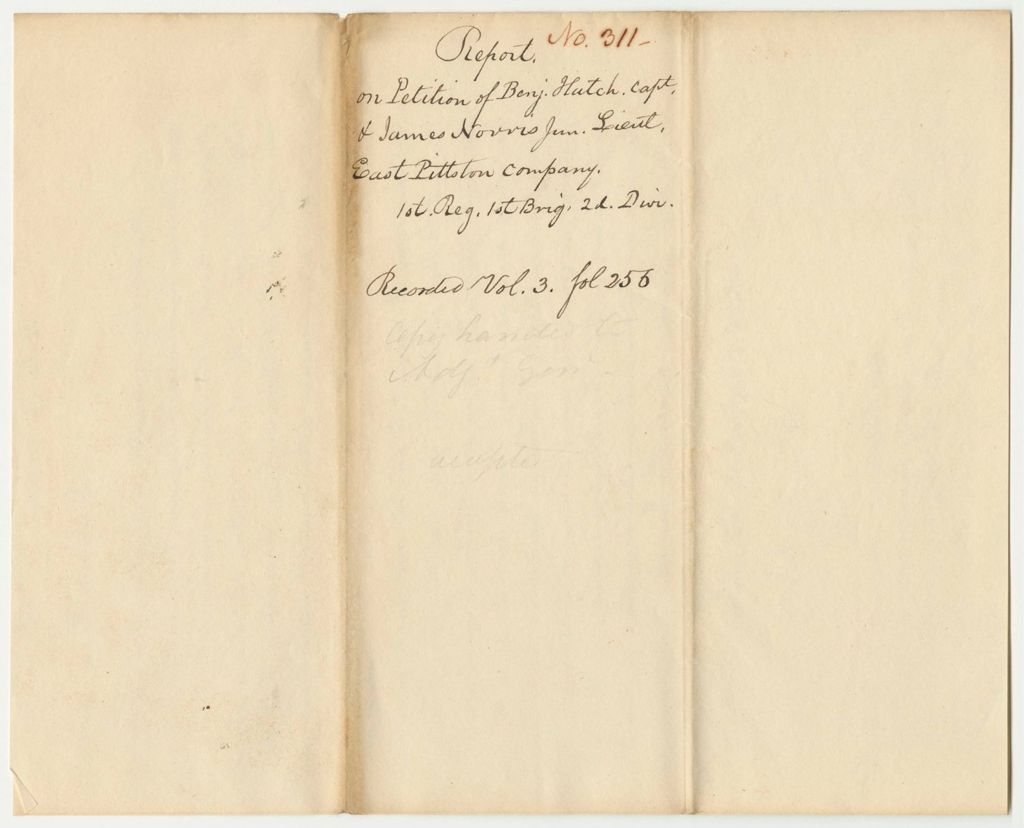 Report. No. 311-
on Petition of Benj. Hatch. Capt,
& James Norris Jun. Lieut,
East Pittston Company.
1st. Reg. 1st Brig. 2d. Divi.
Recorded Vol. 3. fol 256
Copy handed to
Adjt Genl -
accepted